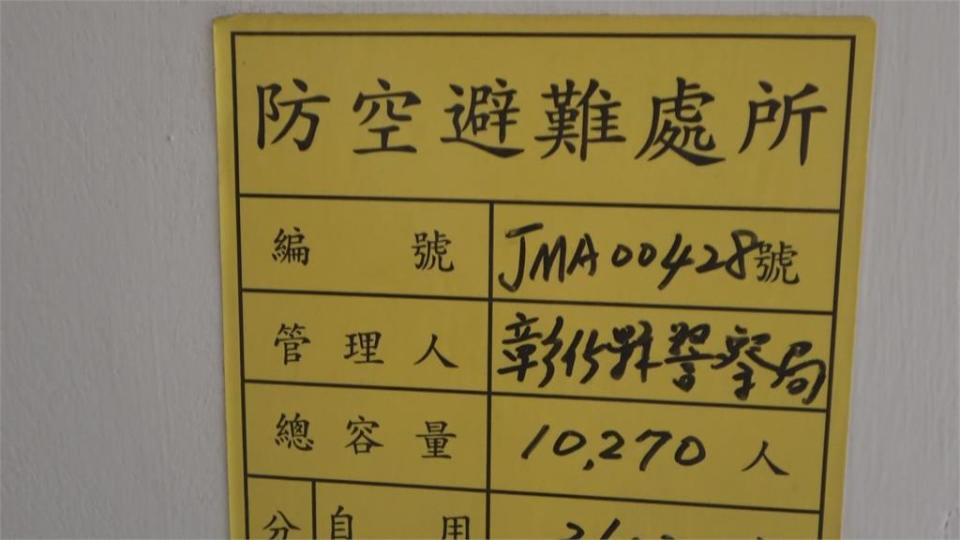 防空避難處所
編號 JMA00428號
管理人 彰化縣警察局
總容量 10,270人
分 自用